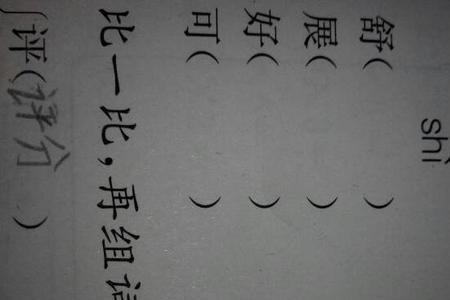 shì
舒（ ）
展（ ）
好（ ）
可（ ）
比一比，再组词
评（评分 ）